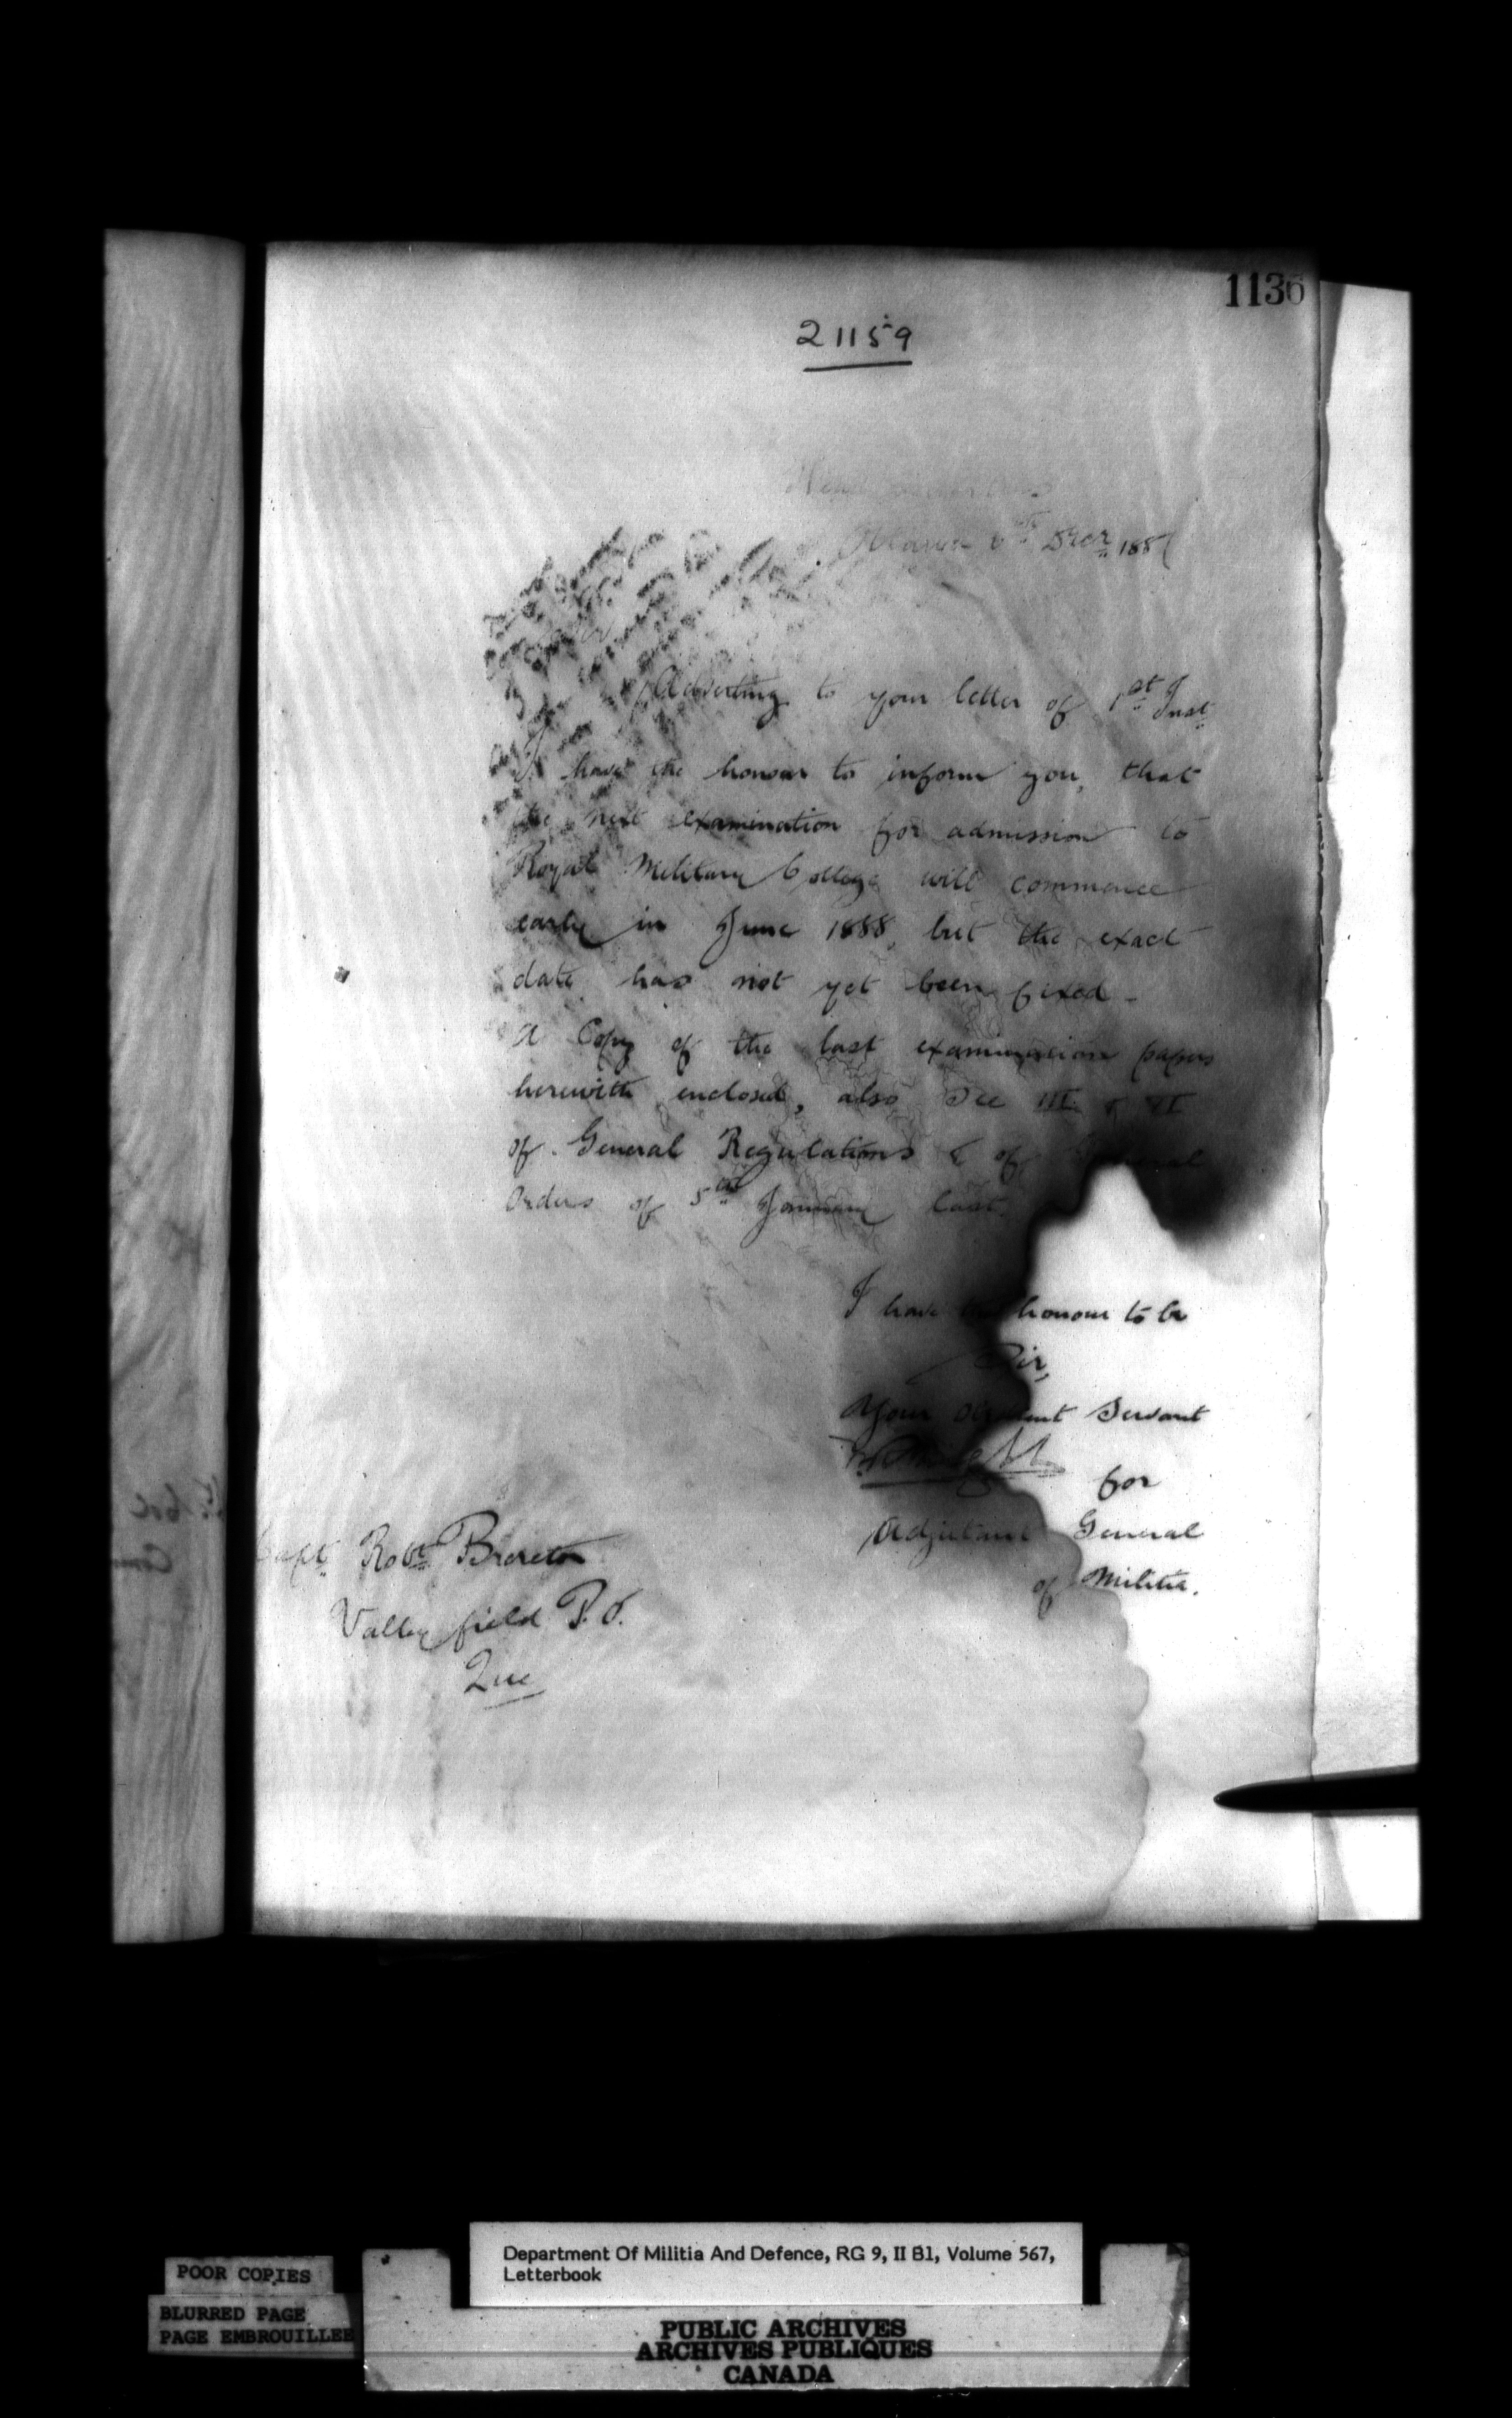 1136
21159
Head Quarters
Ottawa 6th Decr 1887
Adverting to your letter of 1st Inst.
I have the honour to inform you, that
the next examination for admission to
Royal Military College will commence
early in June 1888, but the exact
date has not yet been fixed -
A Copy of the last examination papers
herewith enclosed, also See III & VI
of General Regulations & of General
Orders of 5th January last.
I have the honour to be
Sir,
Your Obedient Servant
for
Adjutant General
of Militia.
Capt. Robt Brereton
Valleyfield P.O.
Que
POOR COPIES
BLURRED PAGE
PAGE EMBROUILLEE
Department Of Militia And Defence, RG 9, II B1, Volume 567,
Letterbook
PUBLIC ARCHIVES
ARCHIVES PUBLIQUES
CANADA